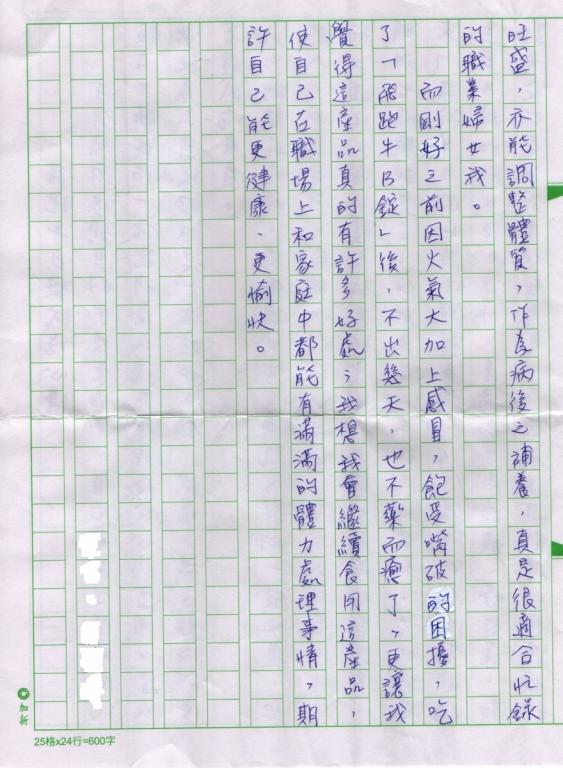 旺盛，亦能調整體質，作為病後之補養，真是很適合忙錄
的職業婦女我。
而剛好之前因火氣大加上感冒，飽受嘴破的困擾，吃
了「飛跑牛B錠」後，不出幾天，也不藥而癒了，更讓我
覺得這產品真的有許多好處，我想我會繼續食用這產品，
使自己在職場上和家庭中都能有滿滿的體力處理事情，期
許自己能更健康、更愉快。
加新
25格x24行=600字